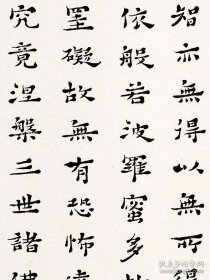 智亦無得以無所得
依般若波羅蜜多
罣礙故無有恐怖
究竟涅槃三世諸佛